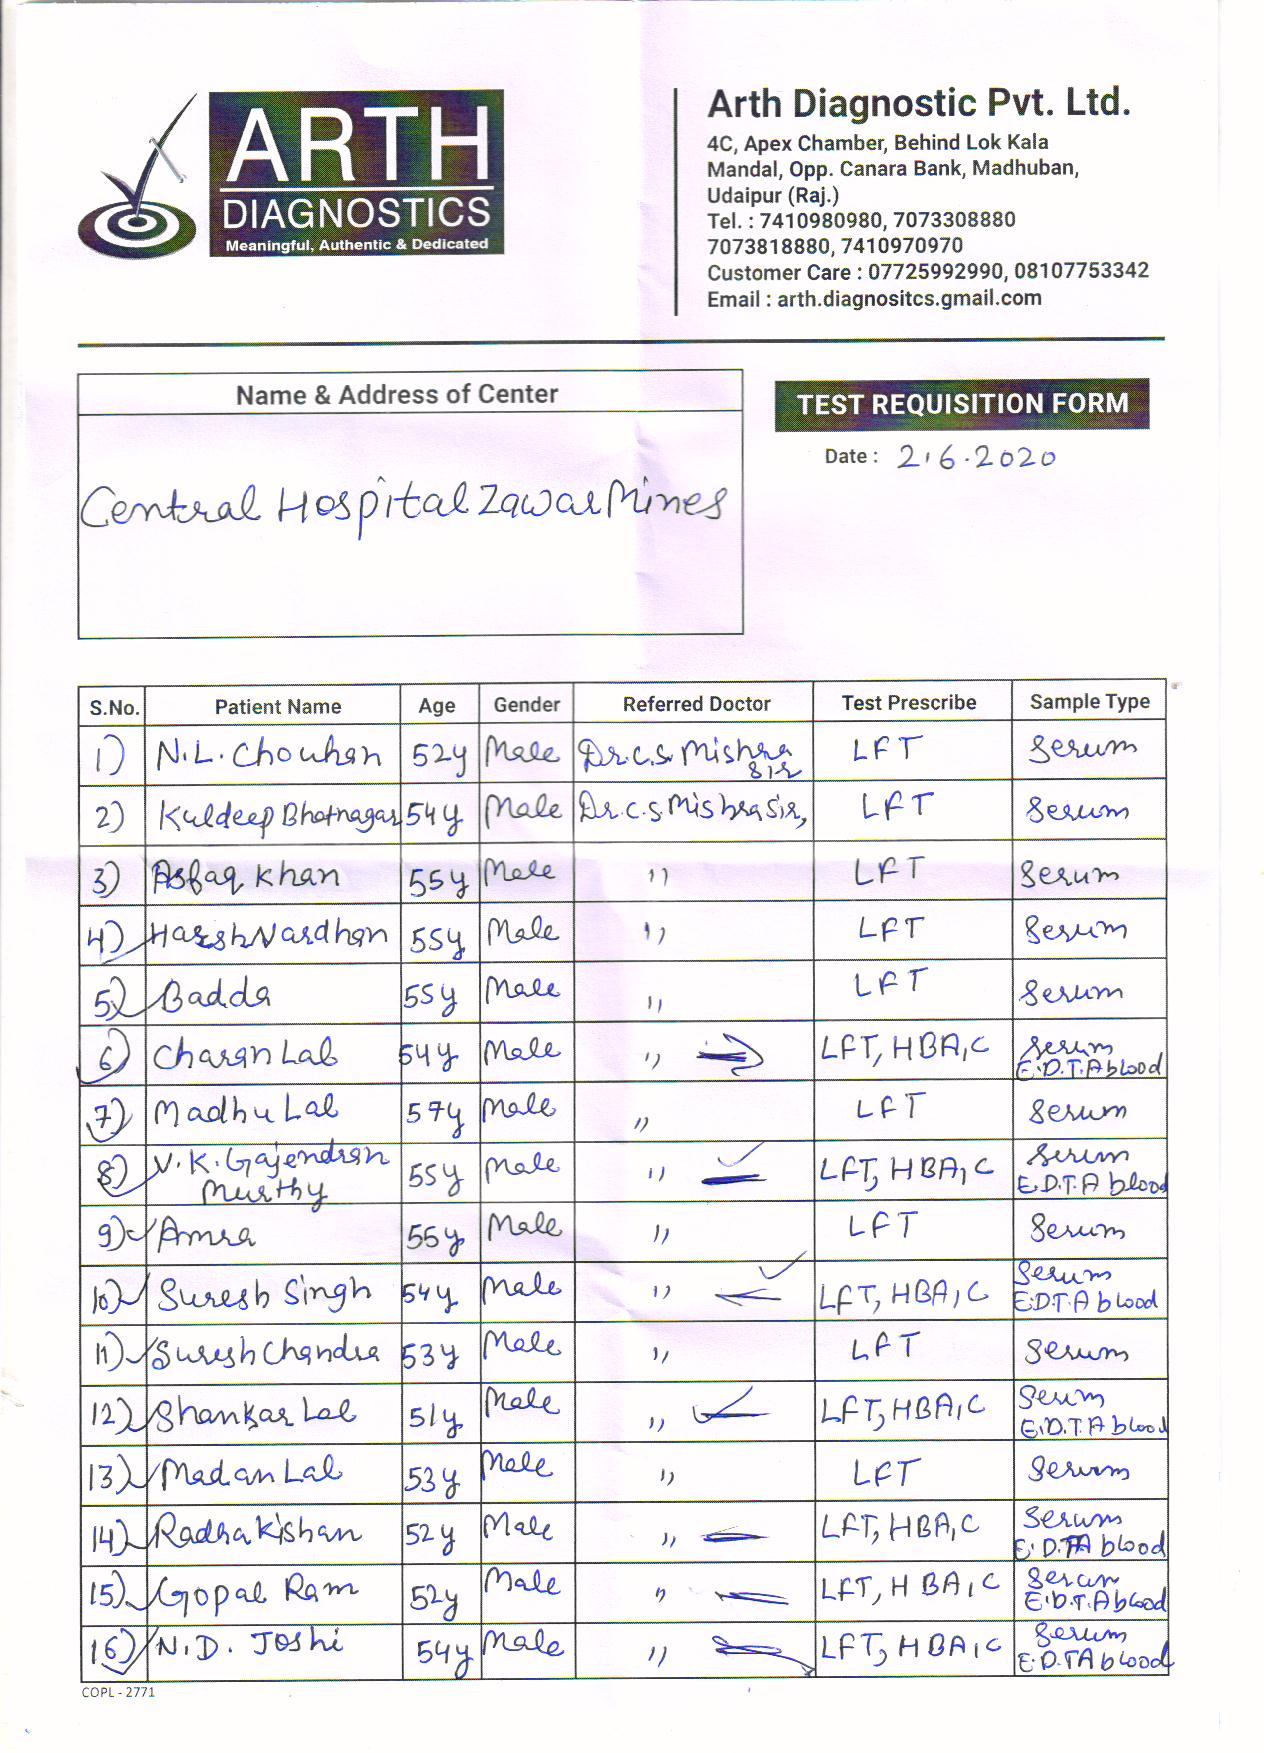 ARTH
DIAGNOSTICS
Meaningful, Authentic & Dedicated
Arth Diagnostic Pvt. Ltd.
4C, Apex Chamber, Behind Lok Kala
Mandal, Opp. Canara Bank, Madhuban,
Udaipur (Raj.)
Tel. : 7410980980, 7073308880
7073818880, 7410970970
Customer Care : 07725992990, 08107753342
Email : arth.diagnositcs.gmail.com
Name & Address of Center
TEST REQUISITION FORM
Date : 2.6.2020
Central Hospital Zawar Mines
S.No. Patient Name Age Gender Referred Doctor Test Prescribe Sample Type
1) N.L. Chouhan 52y Male Dr. C.S. Mishra Sir LFT Serum
2) Kuldeep Bhatnagar 54y Male Dr. C.S. Mishra Sir, LFT Serum
3) Asfaq Khan 55y Male " LFT Serum
4) HarshVardhan 55y Male " LFT Serum
5) Badda 55y Male " LFT Serum
6) Charan Lal 54y Male " LFT, HBA1C Serum E.D.T.A blood
7) Madhu Lal 57y Male " LFT Serum
8) V.K. Gajendran Murthy 55y Male " LFT, HBA1C Serum E.D.T.A blood
9) Amra 55y Male " LFT Serum
10) Suresh Singh 54y Male " LFT, HBA1C Serum E.D.T.A blood
11) Suresh Chandra 53y Male " LFT Serum
12) Shankar Lal 51y Male " LFT, HBA1C Serum E.D.T.A blood
13) Madan Lal 53y Male " LFT Serum
14) Radha Kishan 52y Male " LFT, HBA1C Serum E.D.TA blood
15) Gopal Ram 52y Male " LFT, HBA1C Serum E.D.T.A blood
16) N.D. Joshi 54y Male " LFT, HBA1C Serum E.D.TA blood
COPL - 2771